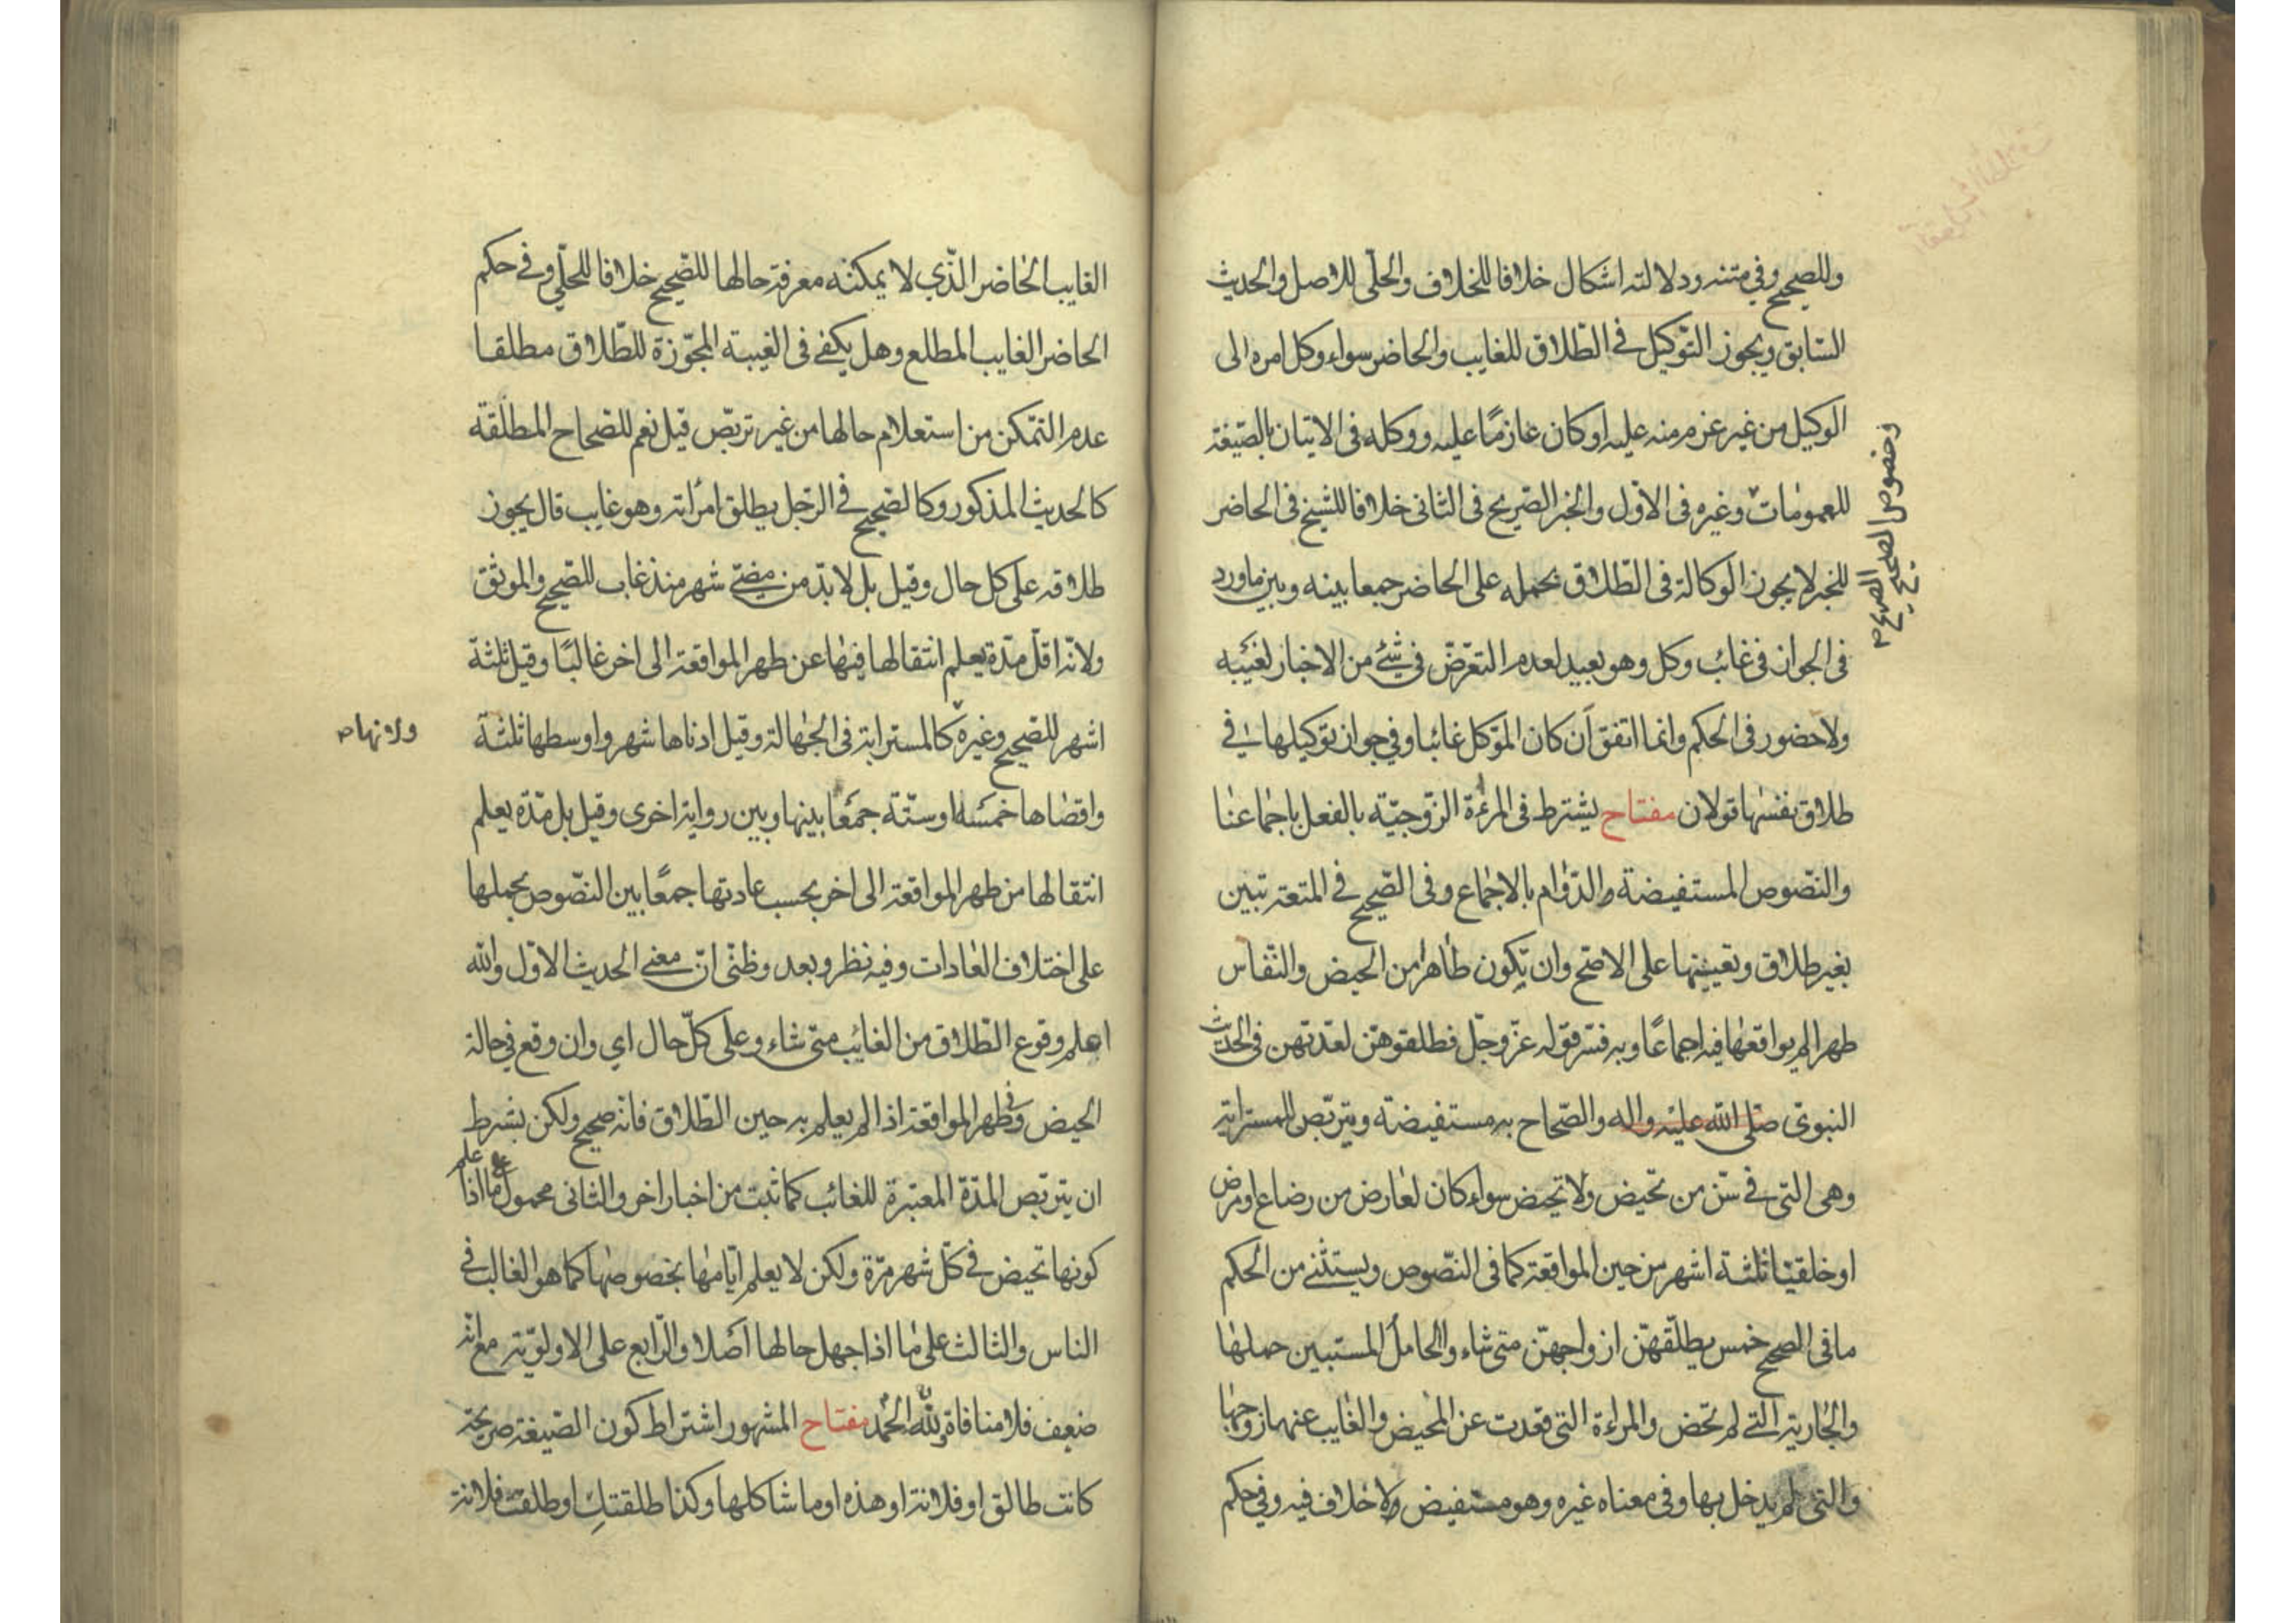 وللصحيح وفي متنه ودلالته اشكال خلافا للخلاف والحلّى للاصل والحديث
السّابق ويجوز التّوكيل فے الطّلاق للغايب والحاضر سواء وكل امره الى
الوكيل من غير عزم منه عليه او كان عازمًا عليه ووكله فى الاتيان بالصّيغة
للعمومات وغيره فى الاوّل والخبر الصّريح فى الثانى خلافا للشيخ فى الحاضر
للخبر لا يجوز الوكالة فى الطّلاق بحمله على الحاضر جمعا بينه وبين ما ورد
فى الجواز فى غائب وكل وهو بعيد لعدم التعرّض فى شئ من الاخبار لغيبه
ولا حضور فى الحكم وانما اتفق ان كان الموّكل غائبا وفي جواز توكيلها فے
طلاق نفسها قولان مفتاح يشترط فى المرءة الزّوجيّة بالفعل باجماعنا
والنّصوص المستفيضة والدّوام بالاجماع وفى الصّحيح فے المتعة تبين
بغير طلاق وتعيينها على الاصّح وان تكون طاهرا من الحيض والنّفاس
طهرا لم يواقعها فيه اجماعًا وبه فسّر قوله عزّ وجلّ فطلقوهنّ لعدّتهن فى الحديث
النبوىّ صلّى الله عليه واله والصّحاح به مستفيضة ويتربّص للمسترابة
وهى التى فے سنّ من تحيض ولا تحيض سواء كان لعارض من رضاع او مرض
او خلقيّا ثلثة اشهر من حين المواقعة كما فى النّصوص ويستثنے من الحكم
ما فى الصحيح خمس يطلّقهنّ ازواجهنّ متى شاء والحامل المستبين حملها
والجارية الّتے لم تحض والمراءة التى قعدت عن المحيض والغايب عنها زوجها
والتى لم يدخل بها وفى معناه غيره وهو مستفيض ولا خلاف فيه وفي حكم
وخصوص الصحيح
الصريح م
الغايب الحاضر الّذي لا يمكنه معرفة حالها للصّحيح خلافا للحلّي وفے حكم
الحاضر الغايب المطلع وهل يكفے فى الغيبة المجوّزة للطّلاق مطلقا
عدم التمّكن من استعلام حالها من غير تربّص قيل نعم للصّحاح المطلقة
كالحديث المذكور وكالصّحيح فے الرّجل يطلق امرأته وهو غايب قال يجوز
طلاقه على كل حال وقيل بل لابدّ من مضےّ شهر منذ غاب للصّحيح والموثق
ولانّه اقلّ مدّة يعلم انتقالها فيها عن طهر المواقعة الى اخر غالبًا وقيل ثلثة
اشهر للصّحيح وغيره كالمسترابة فى الجهالة وقيل ادناها شهر واوسطها ثلثة
واقصاها خمسة او ستّة جمعًا بينها وبين رواية اخرى وقيل بل مدّة يعلم
انتقالها من طهر المواقعة الى اخر بحسب عادتها جمعًا بين النصّوص بحملها
على اختلاف العادات وفيه نظر وبعد وظنّى انّ معنے الحديث الاوّل والله
اعلم وقوع الطّلاق من الغائب متى شاء وعلى كلّ حال اي وان وقع في حالة
الحيض وفى طهر المواقعة اذا لم يعلم به حين الطّلاق فانّه صحيح ولكن بشرط
ان يتربّص المدّة المعتبرة للغائب كما ثبت من اخبار اخر والثانى محمول على ما اذا علم
كونها تحيض فے كلّ شهر مرّة ولكن لا يعلم ايّامها بخصوصها كما هو الغالب فے
الناس والثالث على ما اذا جهل حالها اصلا والرّابع على الاولويّة مع انّه
ضعيف فلا منافاة ولله الحمد مفتاح المشهور اشتراط كون الصّيغة صريحة
كانت طالق او فلانة او هذه او ما شاكلها وكذا طلقتكِ او طلقت فلانة
ولانها م